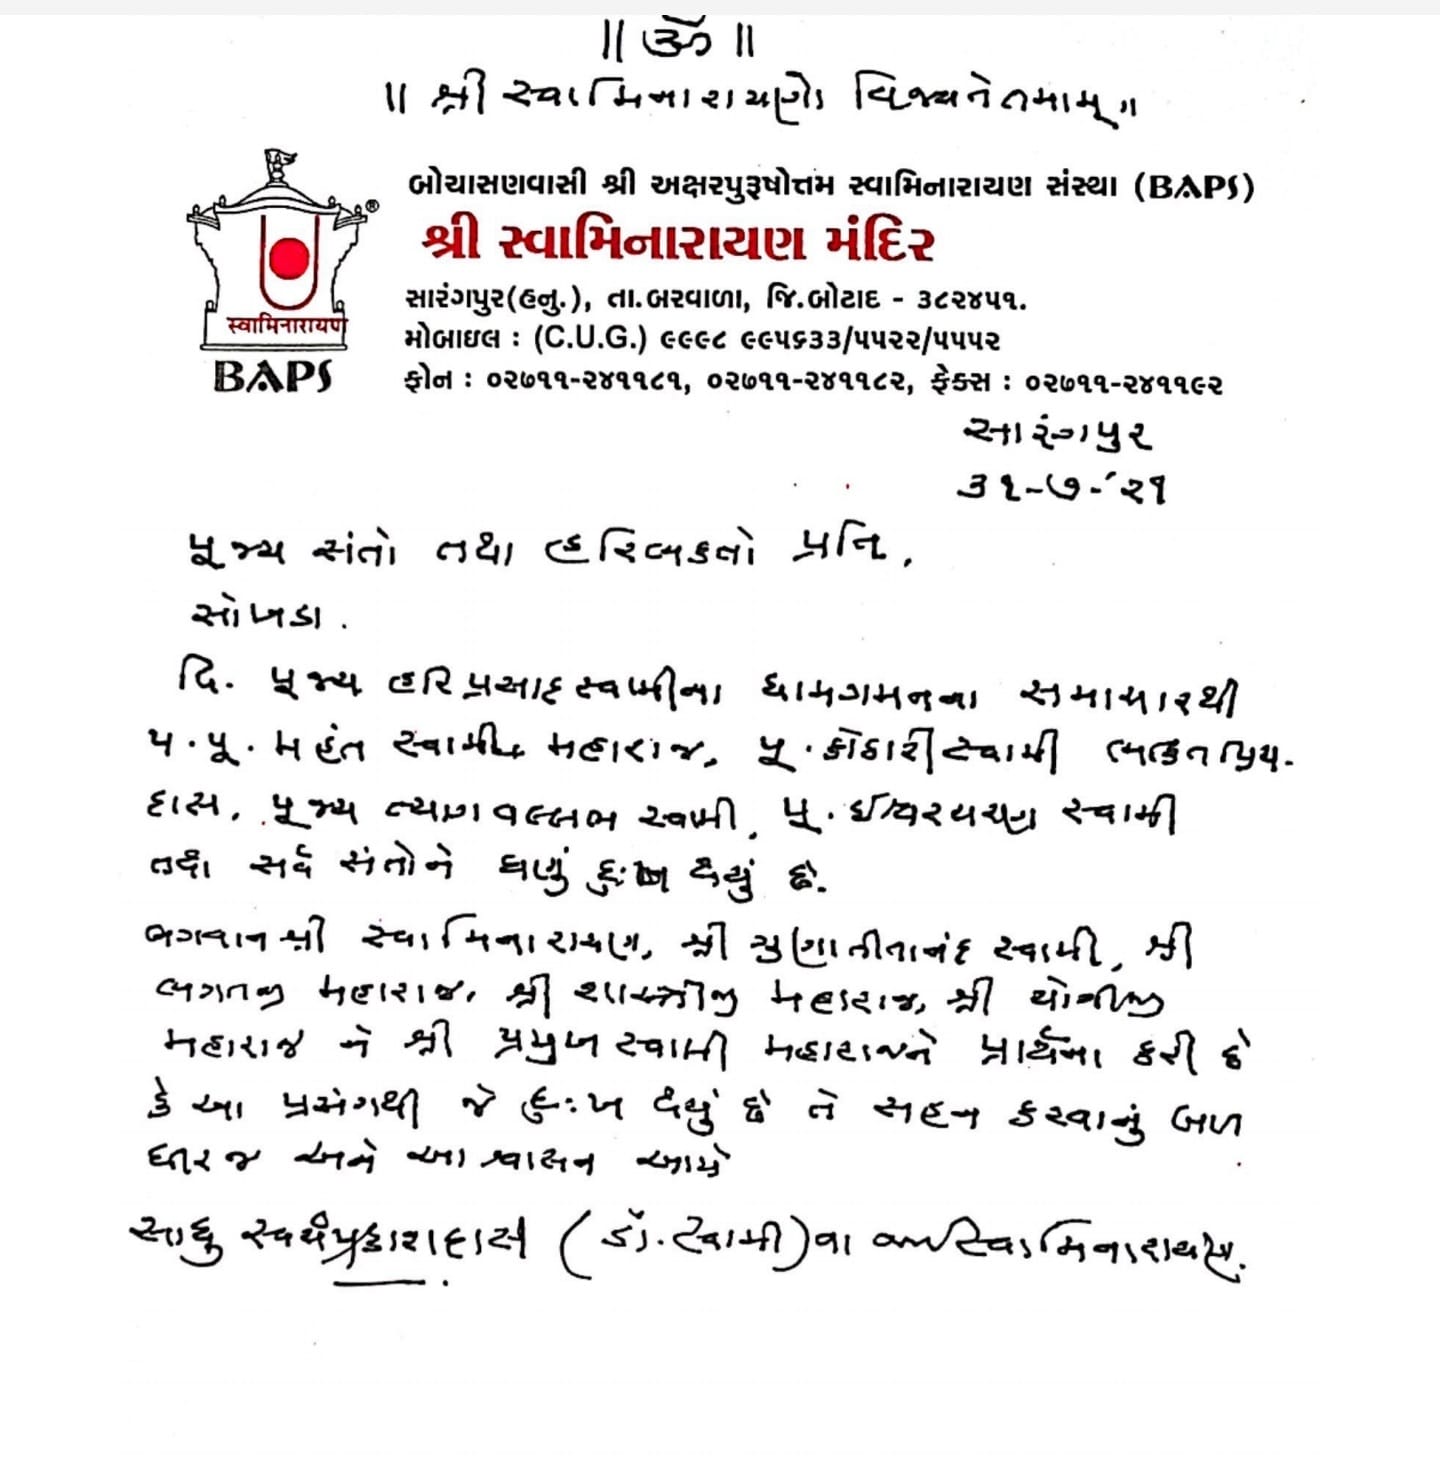 || ૐ ||
|| શ્રી સ્વામિનારાયણો વિજયતેતમામ્ ||
બોચાસણવાસી શ્રી અક્ષરપુરૂષોત્તમ સ્વામિનારાયણ સંસ્થા (BAPS)
શ્રી સ્વામિનારાયણ મંદિર
સારંગપુર(હનુ.), તા.બરવાળા, જિ.બોટાદ - ૩૮૨૪૫૧.
મોબાઇલ : (C.U.G.) ૯૯૯૮ ૯૯૫૬૩૩/૫૫૨૨/૫૫૫૨
ફોન : ૦૨૭૧૧-૨૪૧૧૮૧, ૦૨૭૧૧-૨૪૧૧૮૨, ફેક્સ : ૦૨૭૧૧-૨૪૧૧૯૨
स्वामिनारायण
®
BAPS
સારંગપુર
૩૧-૭-'૨૧
પૂજ્ય સંતો તથા હરિભક્તો પ્રતિ,
સોખડા.
દિ. પૂજ્ય હરિપ્રસાદ સ્વામીના ધામગમનના સમાચારથી
પ.પૂ. મહંત સ્વામી મહારાજ, પૂ. કોઠારી સ્વામી ભક્તપ્રિય-
દાસ, પૂજ્ય ત્યાગવલ્લભ સ્વામી, પૂ. ઈશ્વરચરણ સ્વામી
તથા સર્વે સંતોને ઘણું દુઃખ થયું છે.
ભગવાન શ્રી સ્વામિનારાયણ, શ્રી ગુણાતીતાનંદ સ્વામી, શ્રી
ભગતજી મહારાજ, શ્રી શાસ્ત્રીજી મહારાજ, શ્રી યોગીજી
મહારાજ ને શ્રી પ્રમુખ સ્વામી મહારાજને પ્રાર્થના કરી છે
કે આ પ્રસંગથી જે દુઃખ થયું છે તે સહન કરવાનું બળ
ધીરજ અને આશ્વાસન આપે
સાધુ સ્વયંપ્રકાશદાસ (ડૉ. સ્વામી) ના જય સ્વામિનારાયણ.